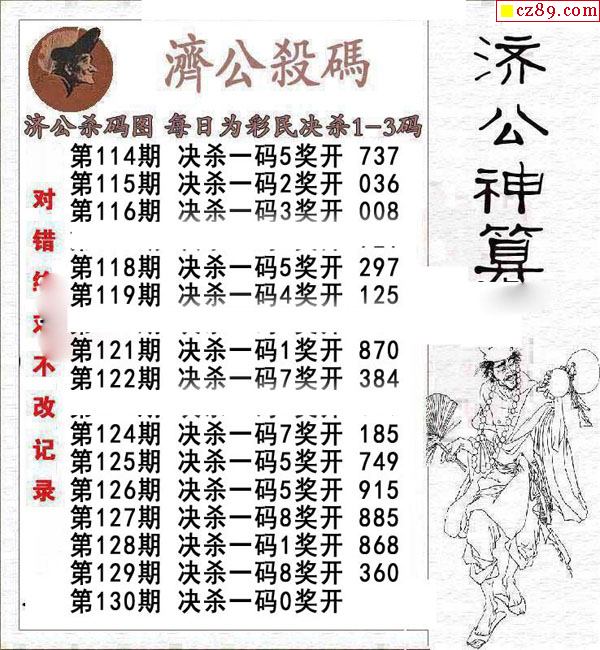 cz89.com
濟公殺碼
济公杀码图 每日为彩民决杀1-3码
第114期 决杀一码5奖开 737
第115期 决杀一码2奖开 036
第116期 决杀一码3奖开 008
第118期 决杀一码5奖开 297
第119期 决杀一码4奖开 125
第121期 决杀一码1奖开 870
第122期 决杀一码7奖开 384
第124期 决杀一码7奖开 185
第125期 决杀一码5奖开 749
第126期 决杀一码5奖开 915
第127期 决杀一码8奖开 885
第128期 决杀一码1奖开 868
第129期 决杀一码8奖开 360
第130期 决杀一码0奖开
对错
不改记录
济公神算